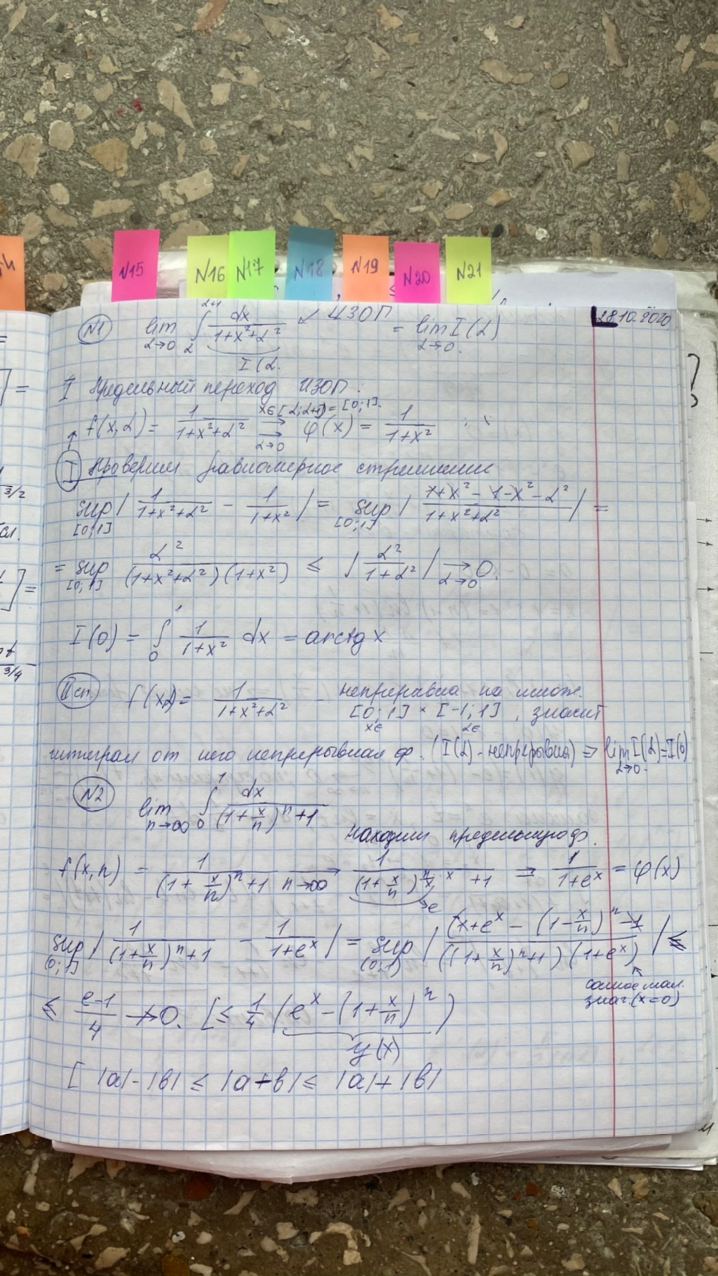 N15
N16
N17
N18
N19
N20
N21
28.10.2020
N1 lim α→0 ∫ α α+1 dx / 1+x²+α² ↙ ИЗОП = lim α→0 I(α)
I(α
I Предельный переход ИЗОП.
f(x,α) = 1 / 1+x²+α² x∈[α;α+1]=[0;1] → α→0 φ(x) = 1 / 1+x²
I Проверим равномерное стремление
sup [0;1] | 1 / 1+x²+α² - 1 / 1+x² | = sup [0;1] | 1+x²-1-x²-α² / 1+x²+α² | =
= sup [0;1] α² / (1+x²+α²)(1+x²) ≤ | α² / 1+α² | → α→0 0.
I(0) = ∫ 0 1 1 / 1+x² dx = arctg x
II сп. f(x,α) = 1 / 1+x²+α² - непрерывна на множ.
[0;1] × [-1;1], значит
x∈ α∈
интеграл от него непрерывная ф. (I(α) - непрерывна) ⇒ lim α→0 I(α)=I(0)
N2 lim n→∞ ∫ 0 1 dx / (1+x/n)ⁿ+1
находим предельную ф.
f(x,n) = 1 / (1+x/n)ⁿ+1 → n→∞ 1 / (1+x/n)^(n/x · x) +1 ⇒ 1 / 1+eˣ = φ(x)
→e
sup (0;1) | 1 / (1+x/n)ⁿ+1 - 1 / 1+eˣ | = sup (0;1) | (1+eˣ - (1-x/n)ⁿ - 1 / ((1+x/n)ⁿ+1)(1+eˣ) | ≤
самое мал.
знач. (x=0)
≤ e-1 / 4 ↛ 0. [ ≤ 1/4 (eˣ - (1+x/n)ⁿ )
y(x)
[ |a|-|b| ≤ |a+b| ≤ |a|+|b|